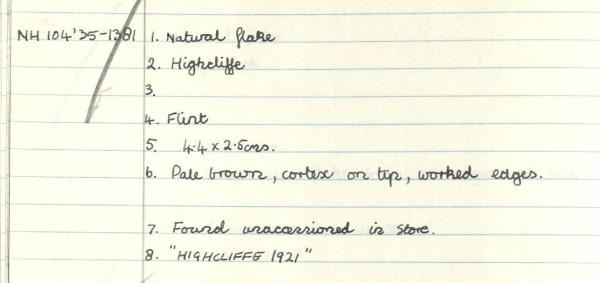 NH 104'35-1381 1. Natural flake
2. Highcliffe
3.
4. Flint
5. 4.4 x 2.5cms.
6. Pale brown, cortex on tip, worked edges.
7. Found unacessioned in store.
8. "HIGHCLIFFE 1921"